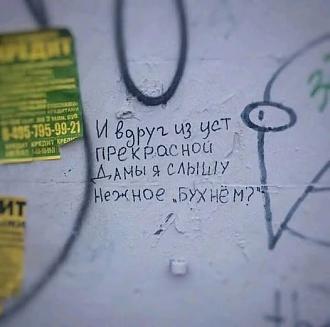 КРЕДИТ
8-495-795-99-21
И вдруг из уст
ПРЕКРАСНОЙ
ДАМЫ Я СЛЫШУ
НЕЖНОЕ „БУХНЁМ?"
ИТ